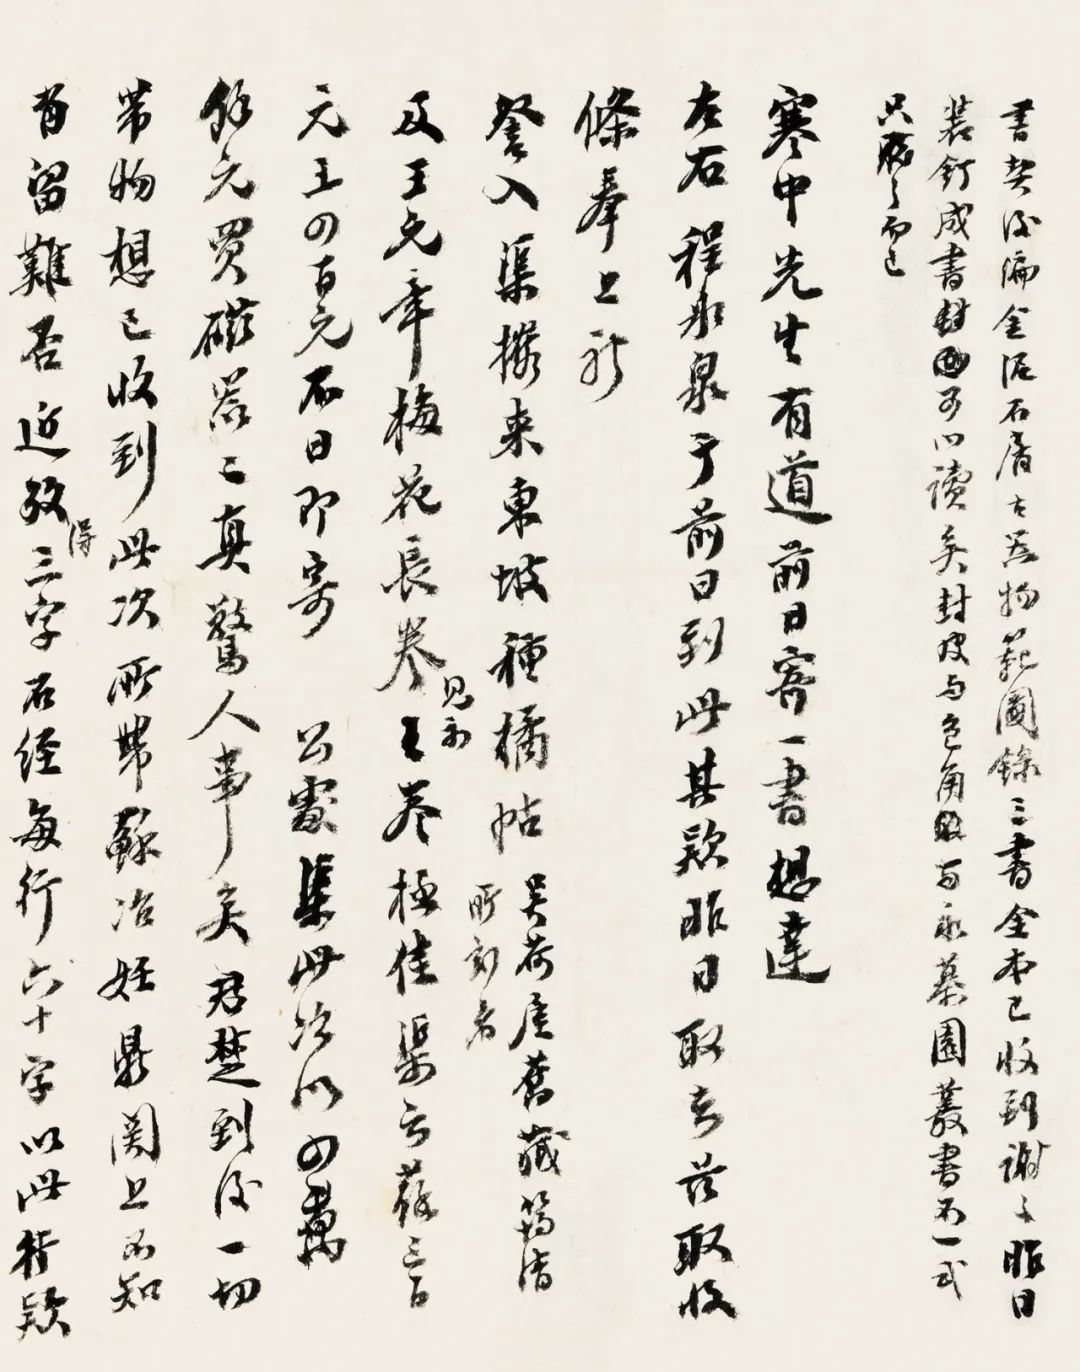 書契後編金泥石屑古器物範圖錄三書全本已收到謝〻昨日
裝釘成書封面可以讀矣封皮与包角與永慕園叢書不一式
只癈〻而已
寒中先生有道前日寄一書想達
左右程冰泉于前日到此其款昨日取去茲取收
條奉上祈
詧入渠攜来東坡種橘帖 吳荷屋舊藏筠清
所刻者
及王元章梅花長卷 見示 王卷極佳渠云蘇三百
元王四百元不日即寄 公處渠此次以四萬
餘元買磁器亡真驚人事矣君楚到後一切
帶物想已收到此次所帶蘇冶妊鼎関上不知
省留難否近攷得三字石经每行六十字以此行款